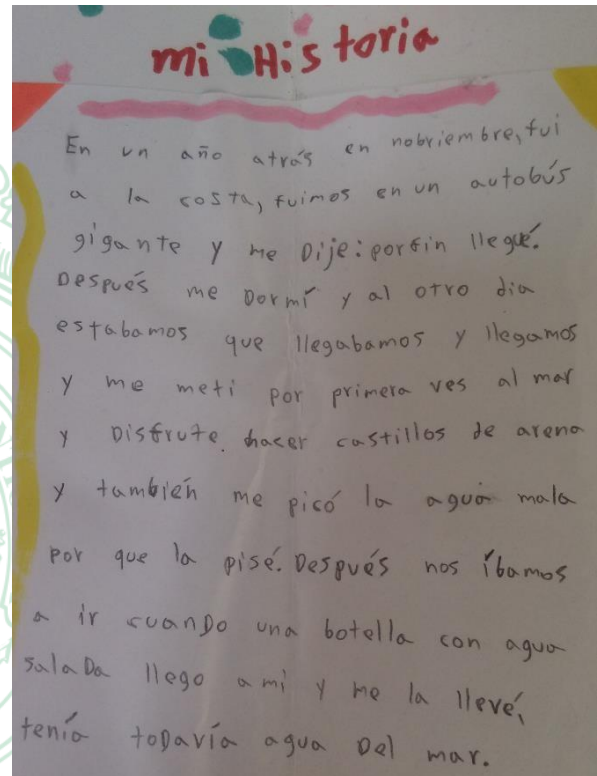 mi Historia
En un año atrás en nobriembre, fui
a la costa, fuimos en un autobús
gigante y me Dije: porfin llegué.
Después me Dormí y al otro dia
estabamos que llegabamos y llegamos
y me meti por primera ves al mar
y Disfrute hacer castillos de arena
y también me picó la agua mala
por que la pisé. Después nos íbamos
a ir cuanDo una botella con agua
salaDa llego a mi y me la llevé,
tenía toDavía agua Del mar.